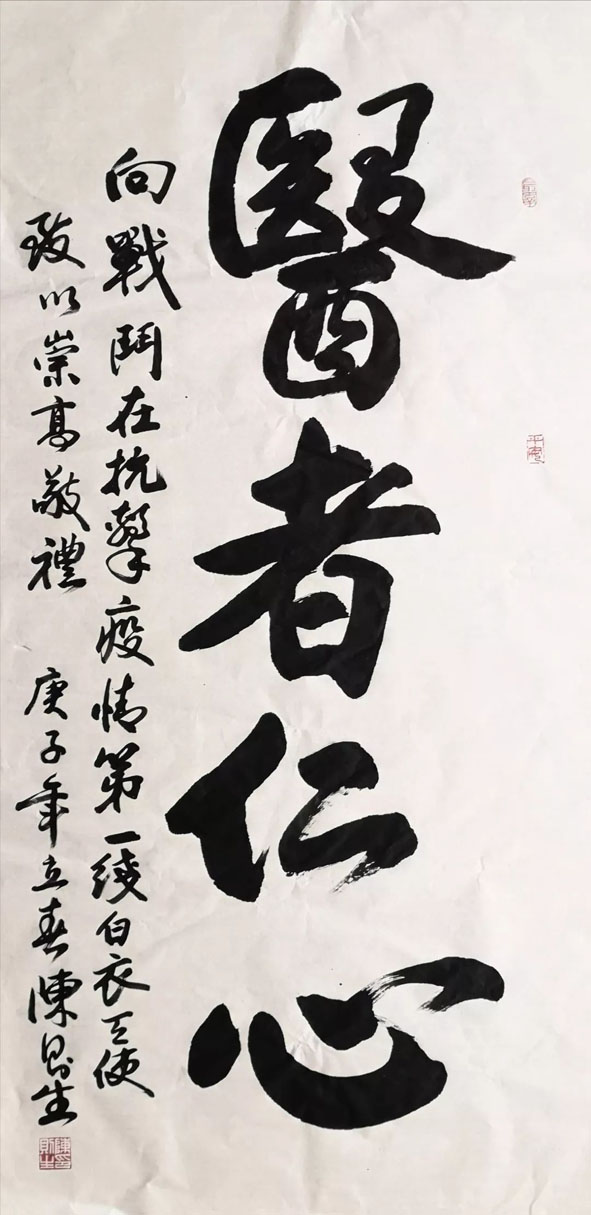 醫者仁心
向戰鬥在抗擊疫情第一綫白衣天使
致以崇高敬禮 庚子年立春陳則生
平安